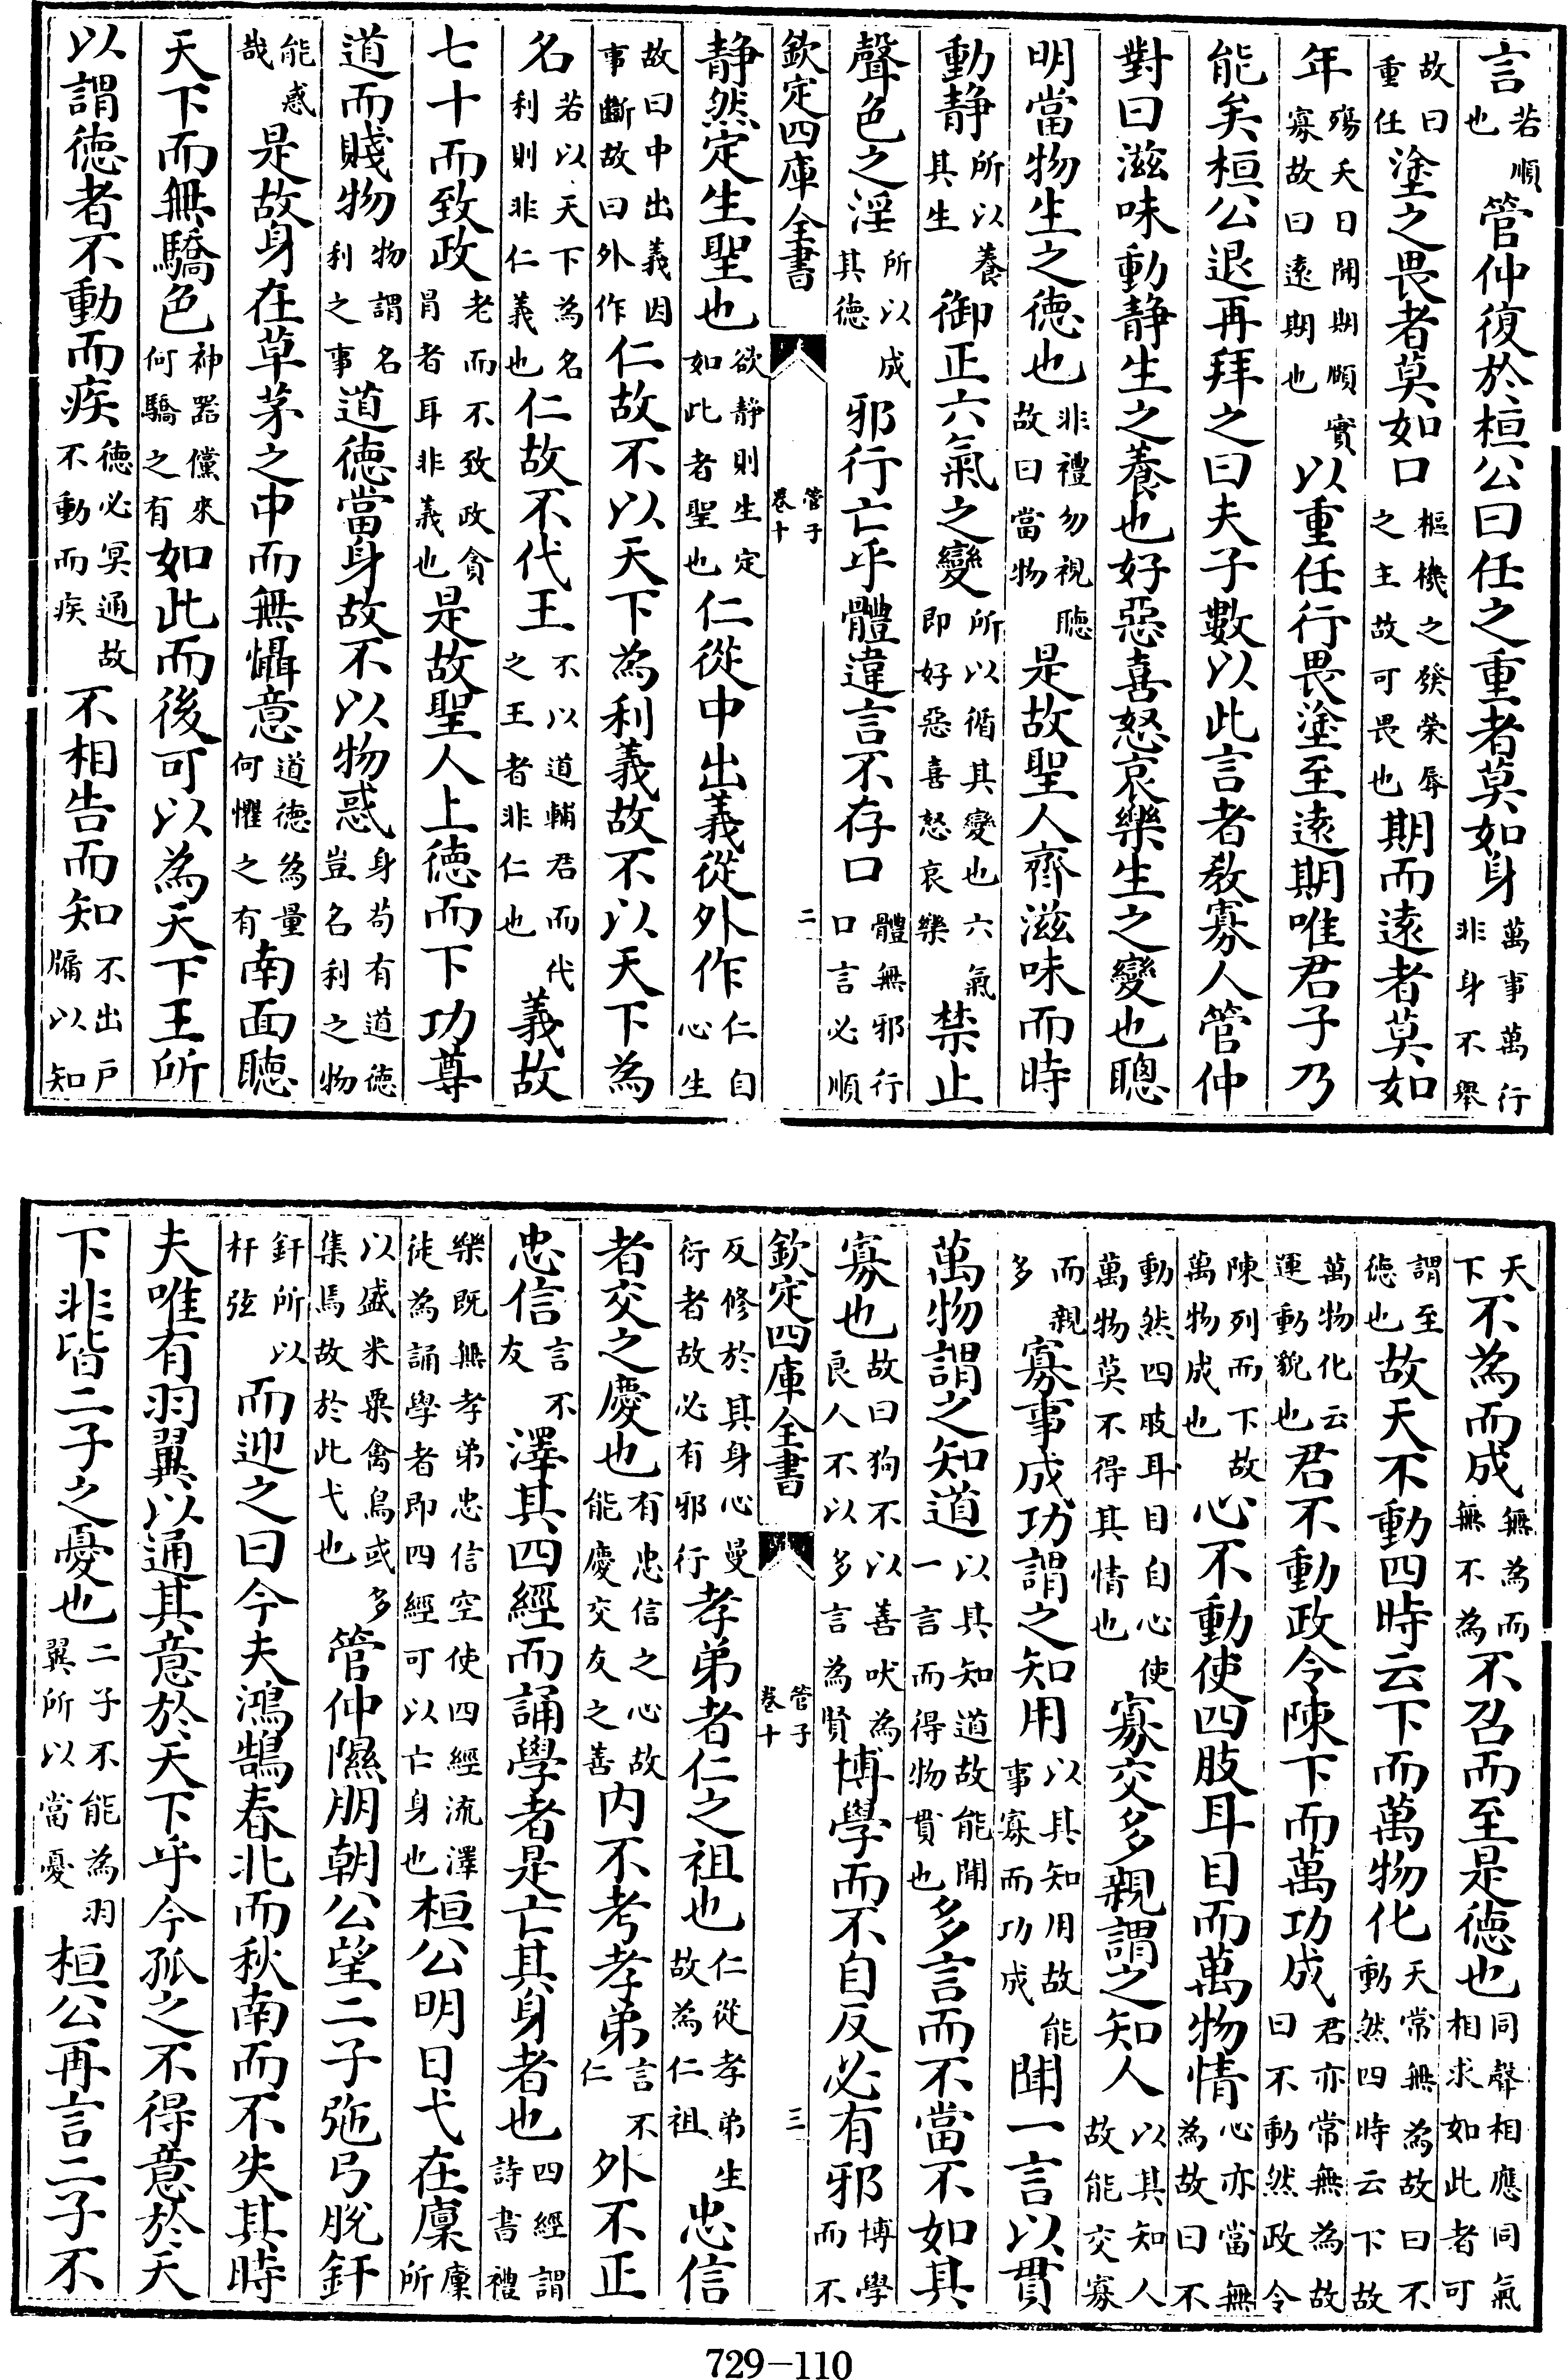 言若順也管仲復於桓公曰任之重者莫如身萬事萬行非身不舉
故曰重任塗之畏者莫如口樞機之發榮辱之主故可畏也期而遠者莫如
年殤夭日開期頤實寡故曰遠期也以重任行畏塗至遠期唯君子乃
能矣桓公退再拜之曰夫子數以此言者教寡人管仲
對曰滋味動静生之養也好惡喜怒哀樂生之變也聰
明當物生之徳也非禮勿視聽故曰當物是故聖人齊滋味而時
動静所以養其生御正六氣之變所以循其變也六氣即好惡喜怒哀樂禁止
聲色之淫所以成其徳邪行亡乎體違言不存口體無邪行口言必順
欽定四庫全書 管子 卷十 二
静然定生聖也欲静則生定如此者聖也仁從中出義從外作仁自心生
故曰中出義因事斷故曰外作仁故不以天下為利義故不以天下為
名若以天下為名利則非仁義也仁故不代王不以道輔君而代之王者非仁也義故
七十而致政老而不致政貪冐者耳非義也是故聖人上徳而下功尊
道而賤物物謂名利之事道徳當身故不以物惑身苟有道徳豈名利之物
能惑哉是故身在草茅之中而無懾意道徳為量何懼之有南面聽
天下而無驕色神器儻來何驕之有如此而後可以為天下王所
以謂徳者不動而疾徳必冥通故不動而疾不相告而知不出戶牖以知
天下不為而成無為而無不為不召而至是徳也同聲相應同氣相求如此者可
謂至徳也故天不動四時云下而萬物化天常無為故曰不動然四時云下故
萬物化云運動貌也君不動政令陳下而萬功成君亦常無為故曰不動然政令
陳列而下故萬物成也心不動使四肢耳目而萬物情心亦當無為故曰不
動然四肢耳目自心使萬物莫不得其情也寡交多親謂之知人以其知人故能交寡
而親多寡事成功謂之知用以其知用故能事寡而功成聞一言以貫
萬物謂之知道以其知道故能聞一言而得物貫也多言而不當不如其
寡也故曰狗不以善吠為良人不以多言為賢博學而不自反必有邪博學而不
欽定四庫全書 管子 卷十 三
反修於其身心曼衍者故必有邪行孝弟者仁之祖也仁從孝弟生故為仁祖忠信
者交之慶也有忠信之心故能慶交友之善内不考孝弟言不仁外不正
忠信言不友澤其四經而誦學者是亡其身者也四經謂詩書禮
樂既無孝弟忠信空使四經流澤徒為誦學者即四經可以亡身也桓公明日弋在廩廩所
以盛米粟禽鳥或多集焉故於此弋也管仲隰朋朝公望二子弛弓脫釬
釬所以杆弦而迎之曰今夫鴻鵠春北而秋南而不失其時
夫唯有羽翼以通其意於天下乎今孤之不得意於天
下非皆二子之憂也二子不能為羽翼所以當憂桓公再言二子不
729-110